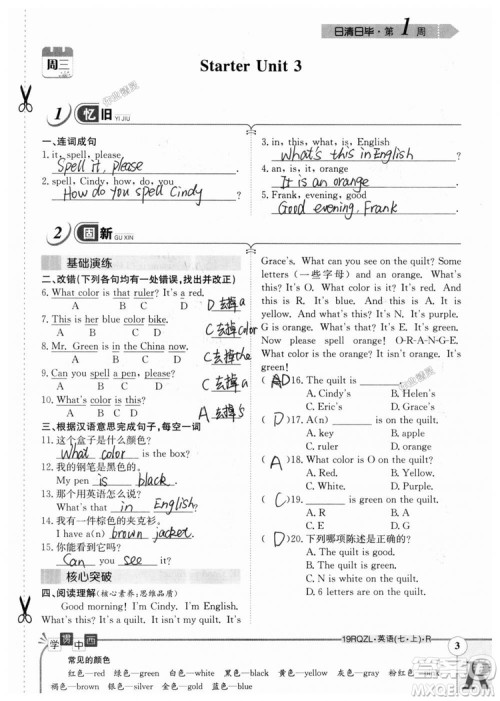 日清日毕·第1周
周三
Starter Unit 3
1 忆旧 YI JIU
一、连词成句
1. it, spell, please
Spell it, please
2. spell, Cindy, how, do, you
How do you spell Cindy
3. in, this, what, is, English
What's this in English
4. an, is, it, orange
It is an orange
5. Frank, evening, good
Good evening, Frank
2 固新 GU XIN
基础演练
二、改错(下列各句均有一处错误,找出并改正)
6. What color is that ruler? It's a red.
A B C D
D 去掉a
7. This is her blue color shirt.
A B C D
去掉color
8. Mr. Green is in the China now.
A B C D
去掉the
9. Can you spell a pen, please?
A B C D
去掉a
10. What's a color is it? It's yellow.
A B C D
A 去掉a
三、根据汉语意思完成句子,每空一词
11. 这个盒子是什么颜色?
What color is the box?
12. 我的钢笔是黑色的。
My pen is black.
13. 那个用英语怎么说?
What's that in English?
14. 我有一件棕色的夹克衫。
I have a(n) brown jacket.
15. 你能看到它吗?
Can you see it?
核心突破
四、阅读理解(核心素养:思维品质)
Good morning! I'm Cindy. I'm English.
What's this? It's a quilt. Is it my quilt? No, it's
Grace's. What can you see on the quilt? I can see
letters (一些字母) and an orange. What color is O?
It is red. What color is R? It's yellow. What
color is A? It's white. What's that? It's E. It's green.
Now please spell orange! O-R-A-N-G-E. The quilt is
green!
( D )16. The quilt is ______.
A. Cindy's B. Helen's
C. Eric's D. Grace's
( D )17. A(n) ______ is on the quilt.
A. key B. jacket
C. ruler D. orange
( A )18. What color is O on the quilt?
A. Red. B. Yellow.
C. White. D. Green.
( C )19. ______ is green on the quilt.
A. O B. R
C. E D. A
( D )20. 下列哪项陈述是正确的?
A. I'm Grace.
B. I'm Chinese.
C. N is white on the quilt.
D. 6 letters are on the quilt.
19RQZL·英语(七·上)·R
3
学贯中西
常见的颜色
红色—red 绿色—green 白色—white 黑色—black 黄色—yellow 粉红色—pink
褐色—brown 蓝色—blue 紫色—purple 橙色—orange